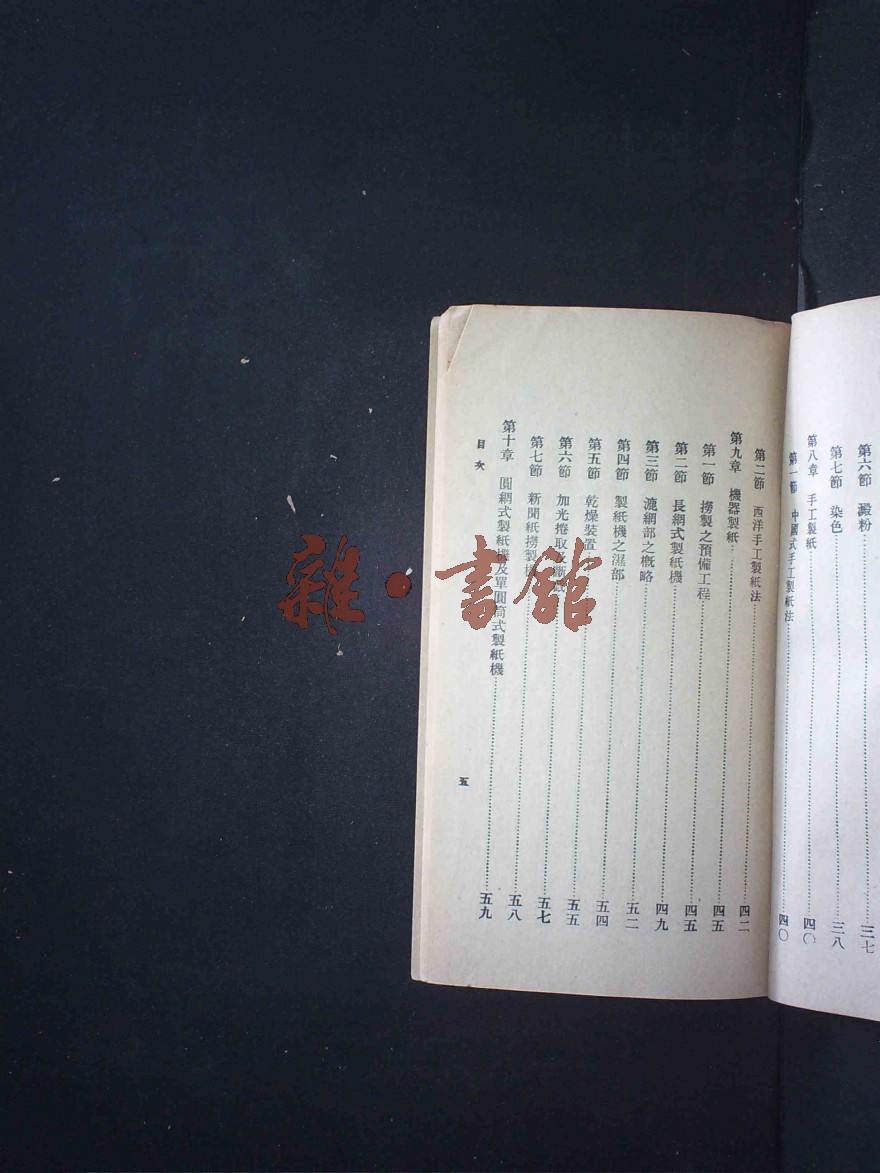 第六節　澱粉……三七
第七節　染色……三八
第八章　手工製紙……四〇
第一節　中國式手工製紙法……四〇
第二節　西洋手工製紙法……四二
第九章　機器製紙……四五
第一節　撈製之預備工程……四五
第二節　長網式製紙機……四九
第三節　漉網部之概略……五二
第四節　製紙機之濕部……五四
第五節　乾燥裝置……五五
第六節　加光捲取及……五七
第七節　新聞紙撈製……五八
第十章　圓網式製紙機及單圓筒式製紙機……五九
目次
五
雜·書館